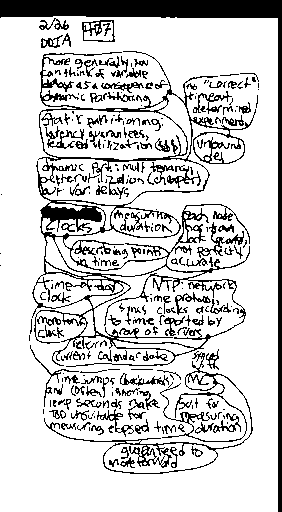 2/26 407
DDIA
more generally, you
can think of variable
delays as a consequence of
dynamic partitioning
no "correct"
timeout,
determined
experiment.
static partitioning,
latency guarantees,
reduced utilization ($$$)
unbound
del
dynamic part: multi tenancy,
better utilization (cheaper)
but var. delays
clocks
measuring
duration
describing points
in time
each node
has its own
clock
not perfectly
accurate
time-of-day
clock
NTP: network
time protocol,
syncs clocks according
to time reported by
group of servers
monotonic
clock
returns
current calendar date
synced
with
MC
time jumps (backwards)
and (often) ignoring
leap seconds make
TOD unsuitable for
measuring elapsed time
suit. for
measuring
duration
guaranteed to
move forward